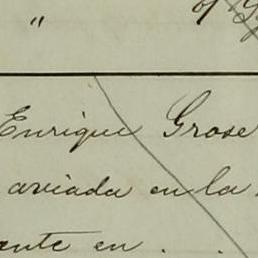 "
Enrique Grose
aviada en la
ante en . .